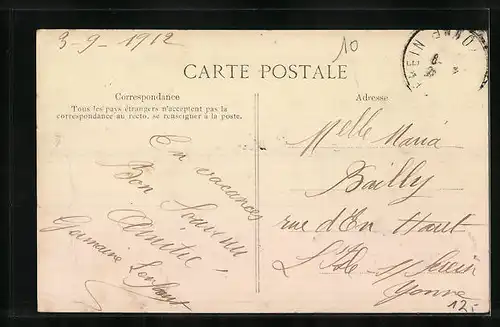 3-9-1912
10
CARTE POSTALE
Correspondance
Tous les pays étrangers n'acceptent pas la
correspondance au recto, se renseigner à la poste.
En vacances
Bon Souvenir
Amitié
Germaine
Adresse
Melle Maria
Bailly
rue d'En Haut
L'Isle s/ Serein
Yonne
12.-